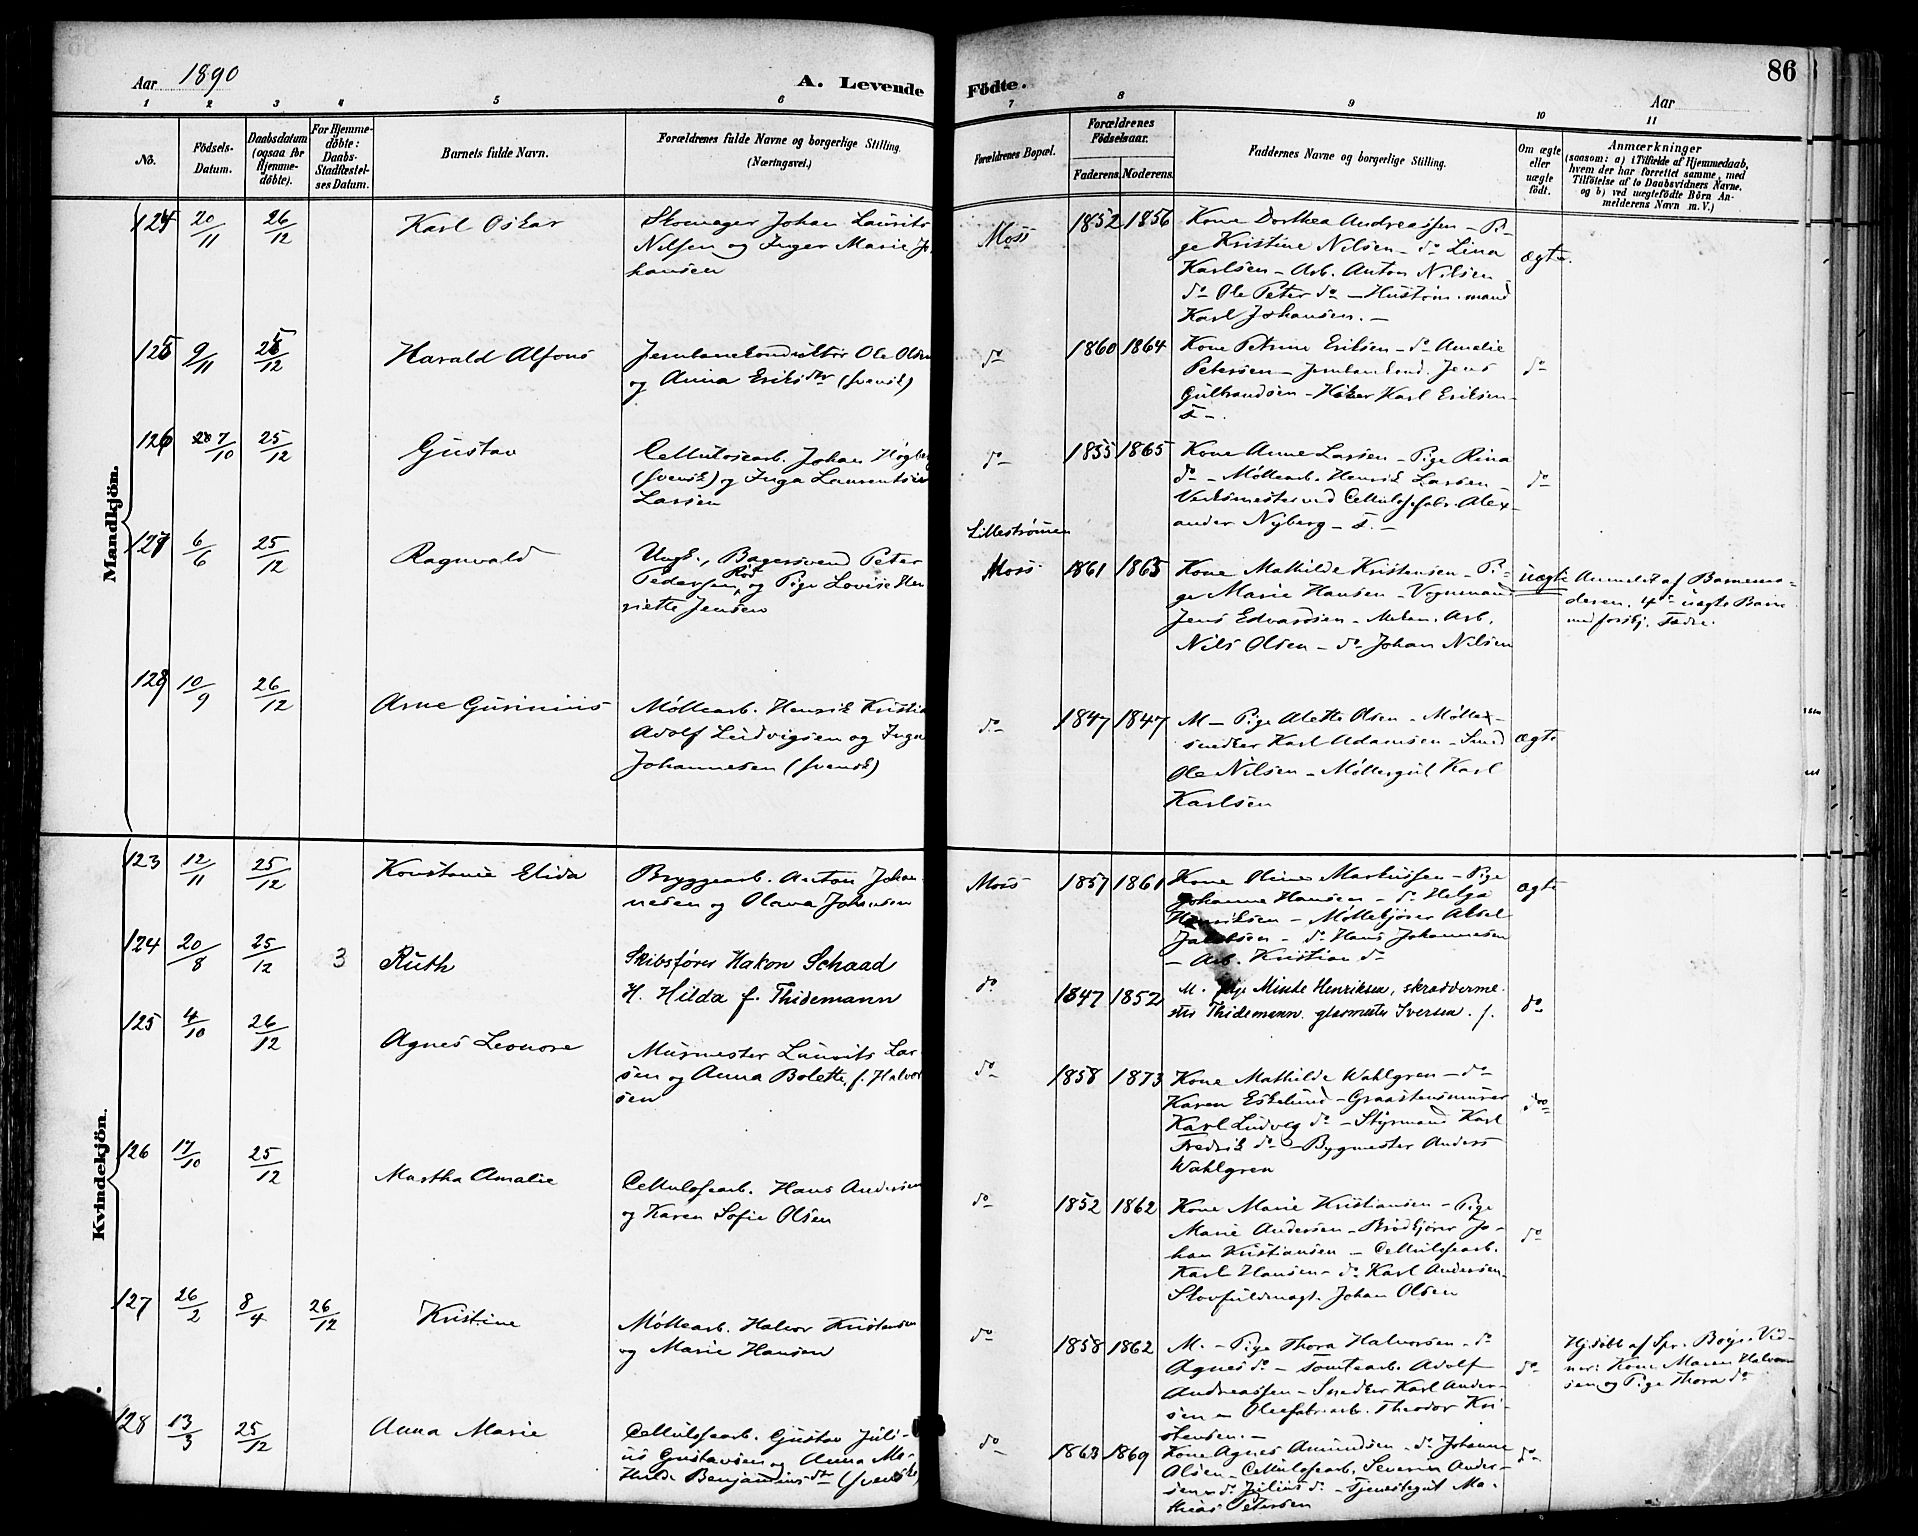 86
Aar 1890
A. Levende Födte.
Aar
1 2 3 4 5 6 7 8 9 10 11
No.
Födsels-Datum.
Daabsdatum (ogsaa for Hjemme-döbte).
For Hjemme-döbte: Daabs-Stadfæstel-ses Datum.
Barnets fulde Navn.
Forældrenes fulde Navne og borgerlige Stilling. (Næringsvei.)
Forældrenes Bopæl.
Forældrenes Födselsaar.
Faderens. Moderens.
Faddernes Navne og borgerlige Stilling.
Om ægte eller uægte födt.
Anmærkninger
(saasom: a) i Tilfælde af Hjemmedaab,
hvem der har forrettet samme, med
Tilföielse af to Daabsvidners Navne,
og b) ved uægtefödte Börn An-
melderens Navn m. V.)
Mandkjön.
124 20/11 26/12 Karl Oskar
Skomager Johan Laurits
Nilsen og Inger Marie Jo
hansen
Moss 1852 1856
Kone Dorthea Andreassen - Pi-
ge Kristine Nilsen - do Lina
Karlsen - Arb. Anton Nilsen
do Ole Peter do - Hustöm.mand
Karl Johansen. -
ægte
125 9/11 25/12 Harald Alfons
Jernbanekonduktör Ole Olsen
og Anna Eriksdtr (svensk)
do 1860 1864
Kone Petrine Eriksen - do Amalie
Petersen - Jernbanekond. Jens
Gulbrandsen - Höker Karl Eriksen -
F -.
do
126 7/10 25/12 Gustav
Cellulosearb. Johan Högberg
(svensk) og Inga Laurentsie
Larsen
do 1855 1865
Kone Anne Larsen - Pige Rina
do - Möllearb. Henrik Larsen -
Verksmester ved Cellulosefabr. Alex-
ander Nyberg - F. -
do
127 6/6 25/12 Ragnvald
Ungk., Bagersvend Peter
Pedersen Röd og Pige Lovise Hen
riette Jensen
Lilleströmmen
Moss 1861 1865
Kone Mathilde Kristensen - Pi-
ge Marie Hansen - Vognmand
Jens Edvardsen - Mekan. Arb.
Nils Olsen - do Johan Nilsen
uægte
Anmeldt af Barnemo-
deren. 4de uægte Barn
med forskj. Fædre.
128 10/9 26/12 Arne Gunnius
Möllearb. Henrik Kristia
Adolf Ludvigsen og Inga
Johannesen (svensk)
do 1847 1847
M - Pige Alette Olsen - Mölle-
snedker Karl Adamsen - Smed
Ole Nilsen - Möllergut Karl
Karlsen
ægte
Kvindekjön.
123 12/11 25/12 Konstance Elida
Bryggearb. Anton Johan
nesen og Olava Johansen
Moss 1857 1861
Kone Oline Markussen - Pige
Johanne Hansen - do Helga
Henriksen - Möllekjörer Aksel
Jakobsen - do Hans Johannesen
- Arb. Kristian do
ægte
124 20/8 25/12 3 Ruth
Skibsförer Hakon Schaad
H. Hilda f. Thidemann
do 1847 1852
M. Pige Minde Henriksen, skrædderme
ster Thidemann. glasmester Iversen. f.
do
125 4/10 26/12 Agnes Leonore
Murmester Laurits Lar
sen og Anna Bolette f. Halvor
sen
do 1858 1873
Kone Mathilde Wahlgren - do
Karen Eskelund - Graastensmurer
Karl Ludvig do - Styrmand Karl
Fredrik do - Bygmester Anders
Wahlgren
do
126 17/10 25/12 Martha Amalie
Cellulosearb. Hans Andersen
og Karen Sofie Olsen
do 1852 1862
Kone Marie Kristiansen - Pige
Marie Andersen - Brödkjörer Jo-
han Kristiansen - Cellulosearb.
Karl Hansen - do Karl Andersen -
Skovfuldmægt. Johan Olsen
do
127 26/2 8/4 26/12 Kristine
Möllearb. Halvor Kristensen
og Marie Hansen
do 1858 1862
M. - Pige Thora Halvorsen - do
Agnes do - Tomtearb. Adolf
Andreassen - Snedker Karl Ander-
sen - Oliefabr.arb. Theodor Kri-
stensen. -
do
Hj.döbt af Spr. Boye. Vid-
ner: Kone Maren Halvor
sen og Pige Thora do
128 13/3 25/12 Anna Marie
Cellulosearb. Gustav Juli-
us Gustavsen og Anna Ma-
thilde Benjaminsdtr (svenske)
do 1863 1869
Kone Agnes Amundsen - do Johanne
Olsen - Cellulosearb. Severin Ander-
sen - do Julius do - Tjenestegut Ma-
thias Petersen
do